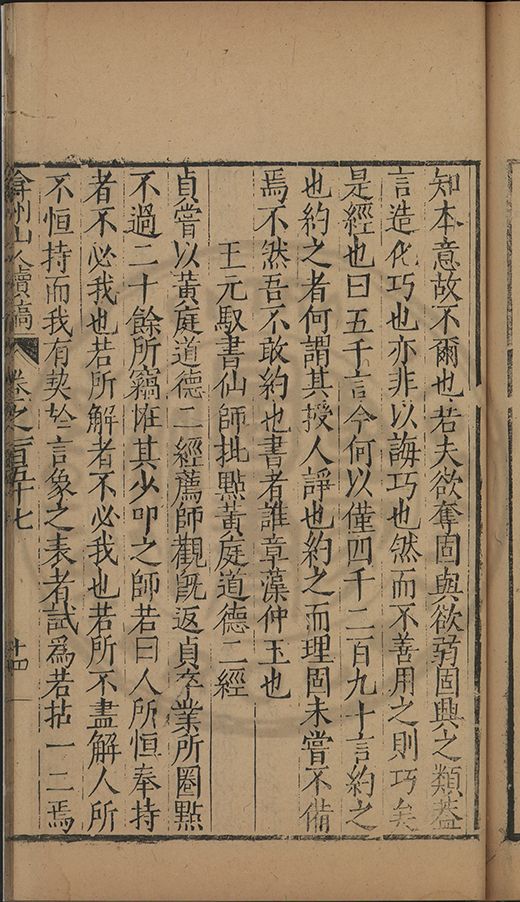 知本意故不爾也若夫欲奪固與欲弱固興之類蓋
言造化巧也亦非以誨巧也然而不善用之則巧矣
是經也曰五千言今何以僅四千二百九十言約之
也約之者何謂其授人諍也約之而理固未嘗不備
焉不然吾不敢約也書者誰章藻仲玉也
王元馭書仙師批點黃庭道德二經
貞嘗以黃庭道德二經薦師觀旣返貞卒業所圈點
不過二十餘所竊恠其少叩之師若曰人所恒奉持
者不必我也若所解者不必我也若所不盡解人所
不恒持而我有契於言象之表者試爲若拈一二焉
弇州山人續稿 卷之一百五十七 十四